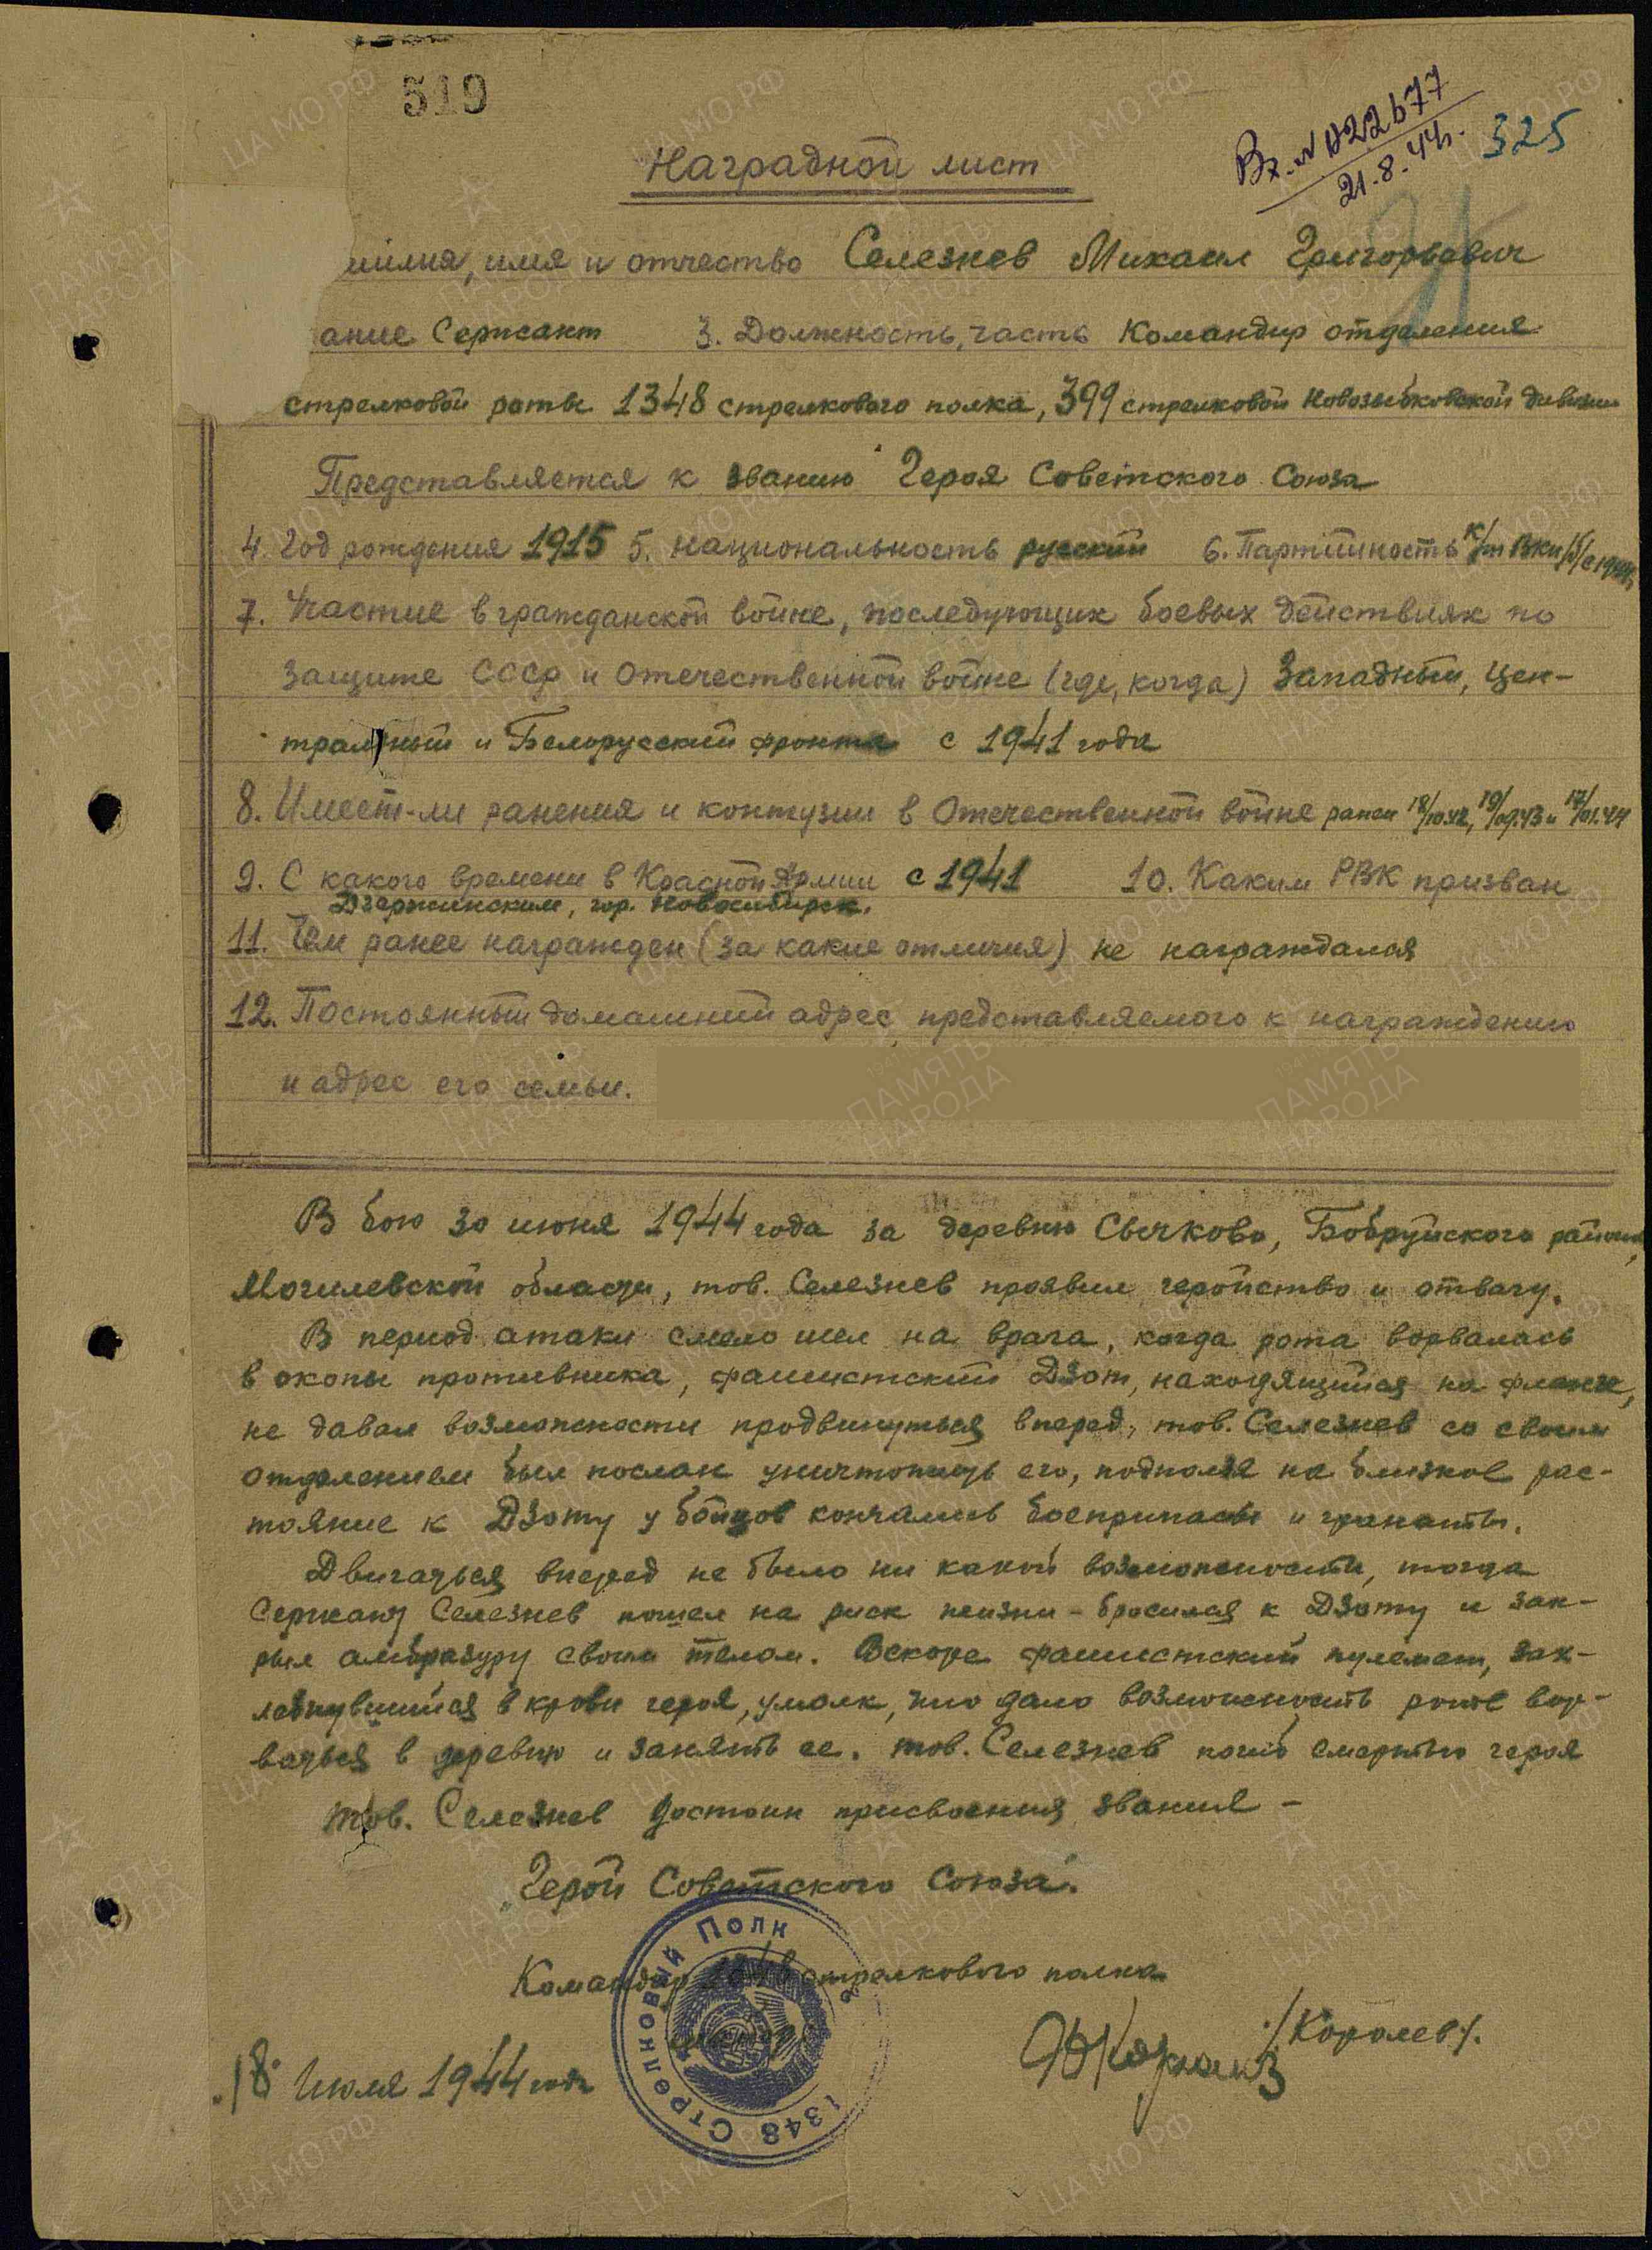 519
Вх. № 022677
21.8.44г.
325
Наградной лист
милия, имя и отчество Селезнев Михаил Григорьевич
ание Сержант 3. Должность, часть Командир отделения
стрелковой роты 1348 стрелкового полка, 399 стрелковой Новозыбковской дивизии
Представляется к званию Героя Советского Союза
4. Год рождения 1915 5. Национальность русский 6. Партийность к/т ВКП/б/ с 1944г.
7. Участие в гражданской войне, последующих боевых действиях по
защите СССР и Отечественной войне (где, когда) Западный, Цен-
тральный и Белорусский фронта с 1941 года
8. Имеет-ли ранения и контузии в Отечественной войне ранен 18/10.42, 19/09.43 и 17/01.44
9. С какого времени в Красной Армии с 1941 10. Каким РВК призван
Дзержинским, гор. Новосибирск.
11. Чем ранее награжден (за какие отличия) не награждался
12. Постоянный домашний адрес представляемого к награждению
и адрес его семьи.
В бою 30 июня 1944 года за деревню Сычково, Бобруйского района,
Могилевской области, тов. Селезнев проявил геройство и отвагу.
В период атаки смело шел на врага, когда рота ворвалась
в окопы противника, фашистский Дзот, находящийся на фланге,
не давал возможности продвинуться вперед, тов. Селезнев со своим
отделением был послан уничтожить его, подползя на близкое рас-
тояние к Дзоту у бойцов кончались боеприпасы и гранаты.
Двигаться вперед не было ни какой возможности, тогда
Сержант Селезнев пошел на риск жизни – бросился к Дзоту и зак-
рыл амбразуру своим телом. Вскоре фашистский пулемет, зах-
лебнувшийся в крови героя, умолк, что дало возможность роте вор-
ваться в деревню и занять ее. тов. Селезнев погиб смертью героя
тов. Селезнев достоин присвоения звания –
„Герой Советского Союза".
Командир 1348 стрелкового полка
/Королев/.
18 Июля 1944 года
1348 Стрелковый Полк
ПАМЯТЬ НАРОДА
ЦА МО РФ